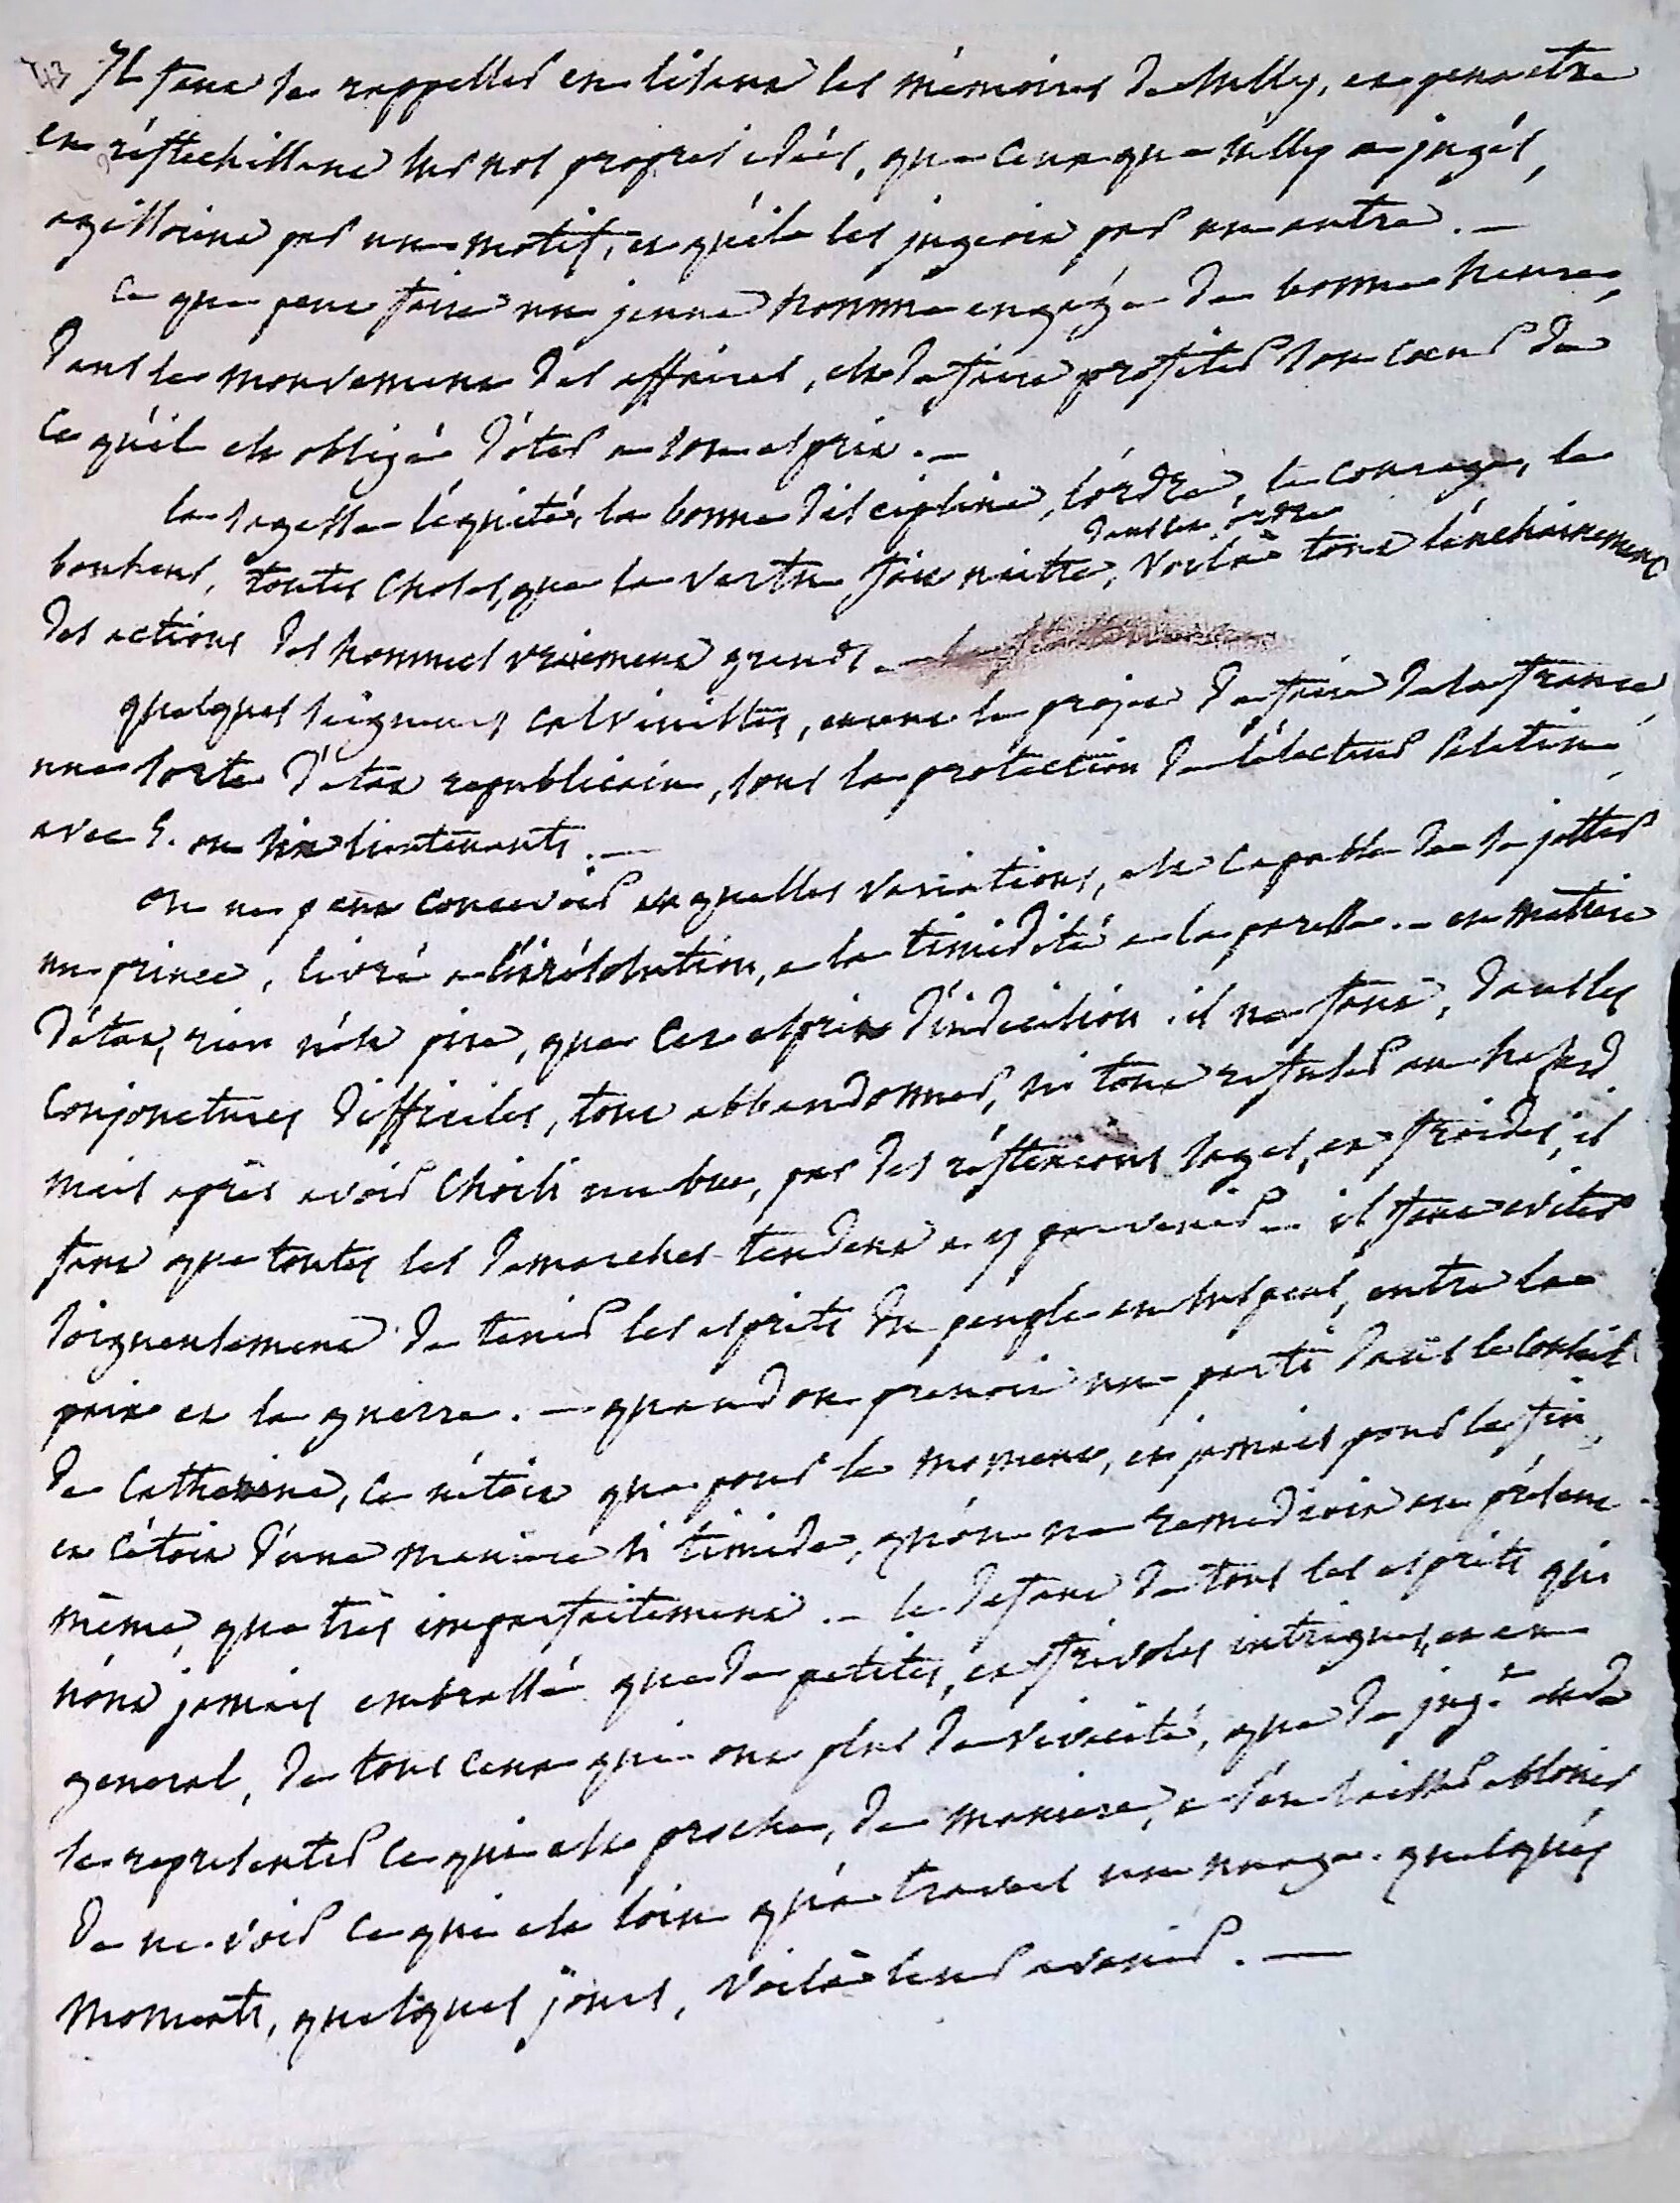 43 Il faut se rappeller en lisant les mémoires de Sully, et peut etre
en réflechissant sur nos propres idées, que ceux que Sully a jugés,
agissoient par un motif, et qu'il les jugeoit par un autre. —
ce que peut faire un jeune homme engagé de bonne heure,
dans le mouvement des affaires, est de faire profiter son coeur de
ce qu'il est obligé d'ôter a son esprit. —
la sagesse l'equité, la bonne discipline, l'ordre, le courage, le
dans cet ordre
bonheur, toutes choses, que la vertu fait naitre, voilà tout l'enchainement
des actions des hommes vraiment grands. —
quelques seigneurs calvinistes, eurent le projet de faire de la france
une sorte d'état republicain, sous la protection de l'électeur Palatin,
avec 5. ou six lieutenants. —
on ne peut concevoir en quelles variations, est capable de se jetter
un prince, livré a l'irrésolution, a la timidité a la paresse. — en matiere
d'état, rien n'est pire, que cet esprit d'indecision. il ne faut, dans les
conjonctures difficiles, tout abbandonner, ni tout refuser au hasard
mais après avoir choisi un but, par des réflexions sages, et froides, il
faut que toutes les demarches tendent a y parvenir. — il faut eviter
soigneusement de tenir les esprits du peuple en suspens, entre la
paix et la guerre. — quand on prenoit un parti dans le conseil
de Catherine, ce n'étoit que pour le moment, et jamais pour la fin,
et c'étoit d'une maniere si timide, qu'on ne remedioit au présent
même, que très imparfaitement. — le defaut de tous les esprits qui
n'ont jamais embrassé que de petites, et frivoles intrigues, et en
general, de tous ceux qui ont plus de vivacité, que de jug.t est de
se representer ce qui est proche, de maniere, a s'en laisser eblouir
de ne voir ce qui est loin qu'a travers un nuage. quelques
moments, quelques jours, voilà leur avenir. —